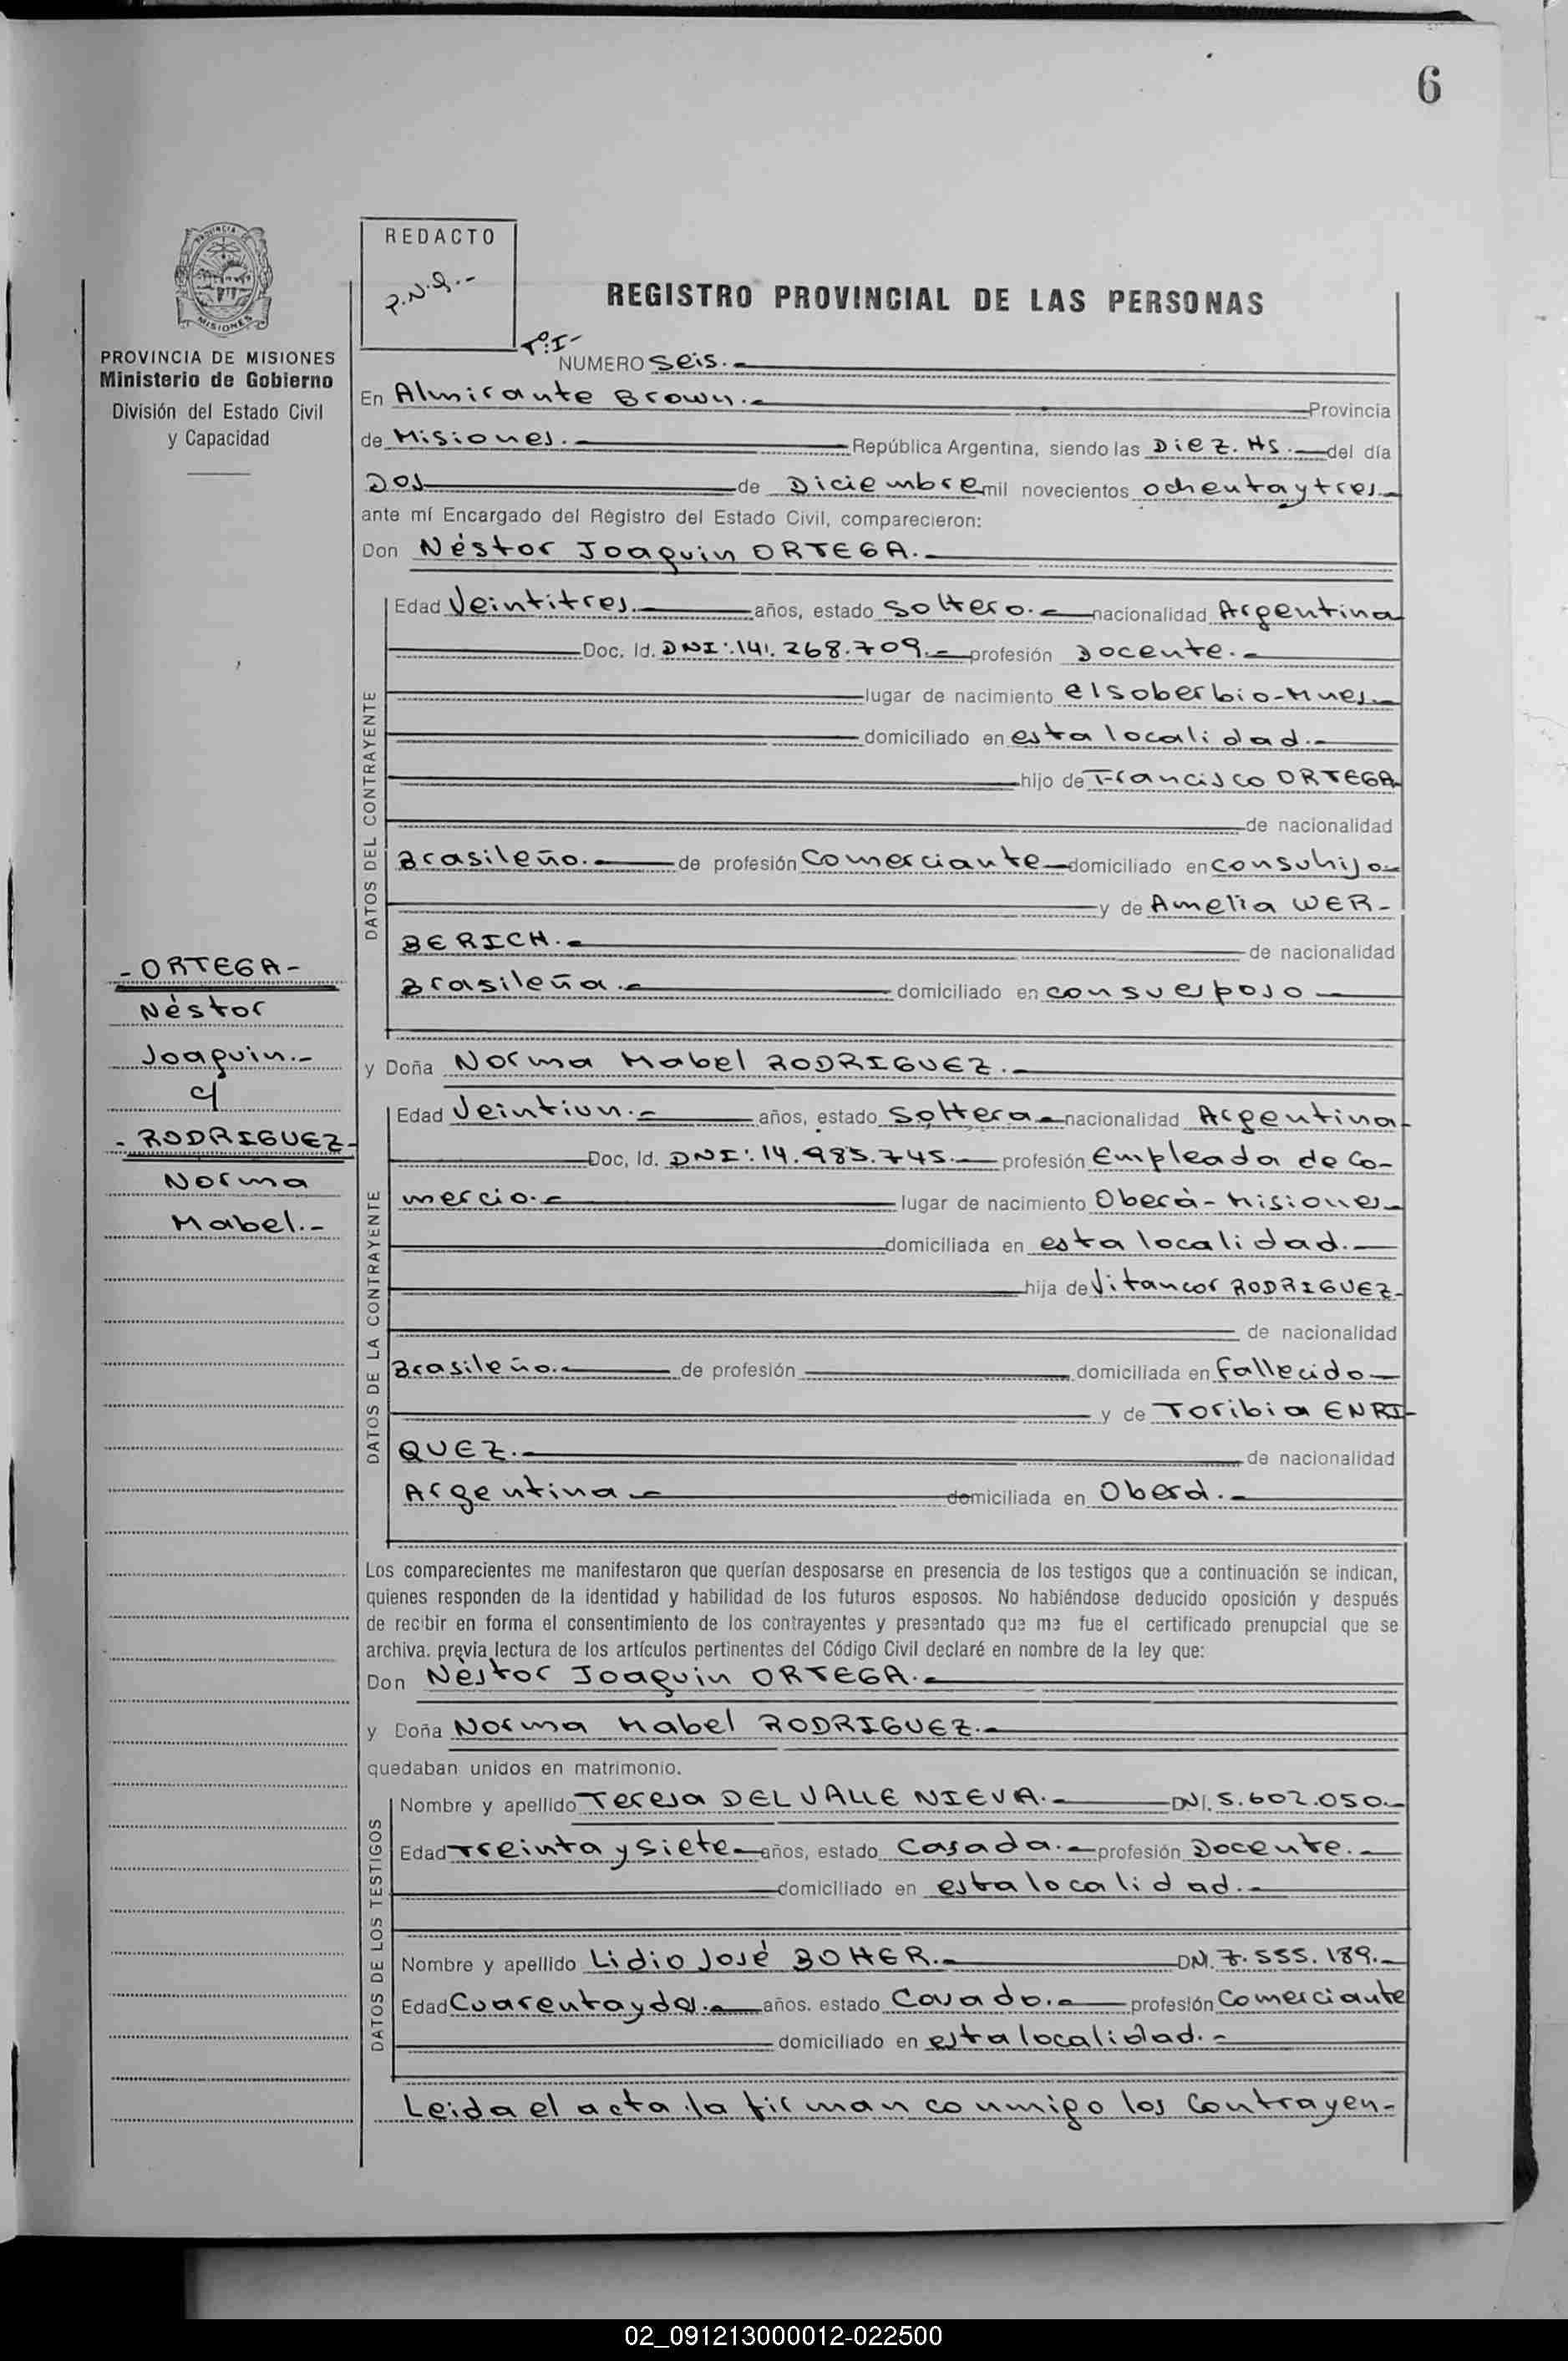 6
PROVINCIA DE
MISIONES
PROVINCIA DE MISIONES
Ministerio de Gobierno
División del Estado Civil
y Capacidad
- ORTEGA -
Néstor
Joaquin.-
c/
- RODRIGUEZ -
Norma
Mabel.-
REDACTO
REGISTRO PROVINCIAL DE LAS PERSONAS
Tº:I-
NUMERO Seis.-
En Almirante Brown.- Provincia
de Misiones.- República Argentina, siendo las Diez. HS.- del día
Dos de Diciembre mil novecientos ochentaytres-
ante mí Encargado del Registro del Estado Civil, comparecieron:
Don Néstor Joaquin ORTEGA.-
DATOS DEL CONTRAYENTE
Edad Veintitres.- años, estado Soltero.- nacionalidad Argentina
Doc. Id. DNI:14.268.709.- profesión Docente.-
lugar de nacimiento elsoberbio-Mnes.-
domiciliado en esta localidad.-
hijo de Francisco ORTEGA
de nacionalidad
Brasileño.- de profesión Comerciante- domiciliado en consuhijo-
y de Amelia WER-
BERICH.- de nacionalidad
Brasileña.- domiciliado en con su esposo-
y Doña Norma Mabel RODRIGUEZ.-
DATOS DE LA CONTRAYENTE
Edad Veintiun.- años, estado Soltera- nacionalidad Argentina-
Doc. Id. DNI:14.985.745.- profesión Empleada de Co-
mercio.- lugar de nacimiento Oberà-Misiones-
domiciliada en esta localidad.-
hija de Vitancor RODRIGUEZ-
de nacionalidad
Brasileño.- de profesión domiciliada en fallecido-
y de Toribia ENRI-
QUEZ.- de nacionalidad
Argentina.- domiciliada en Oberá.-
Los comparecientes me manifestaron que querían desposarse en presencia de los testigos que a continuación se indican,
quienes responden de la identidad y habilidad de los futuros esposos. No habiéndose deducido oposición y después
de recibir en forma el consentimiento de los contrayentes y presentado que me fue el certificado prenupcial que se
archiva. previa lectura de los artículos pertinentes del Código Civil declaré en nombre de la ley que:
Don Nèstor Joaquin ORTEGA.-
y Doña Norma Mabel RODRIGUEZ.-
quedaban unidos en matrimonio.
DATOS DE LOS TESTIGOS
Nombre y apellido Teresa DEL VALLE NIEVA.- DNI. 5.602.050.-
Edad Treinta y Siete- años, estado Casada.- profesión Docente.-
domiciliado en esta localidad.-
Nombre y apellido Lidio José BOHER.- DNI. 7.555.189.-
Edad Cuarentaydos.- años. estado Casado.- profesión Comerciante
domiciliado en esta localidad.-
Leida el acta la firman conmigo los Contrayen-
02_091213000012-022500